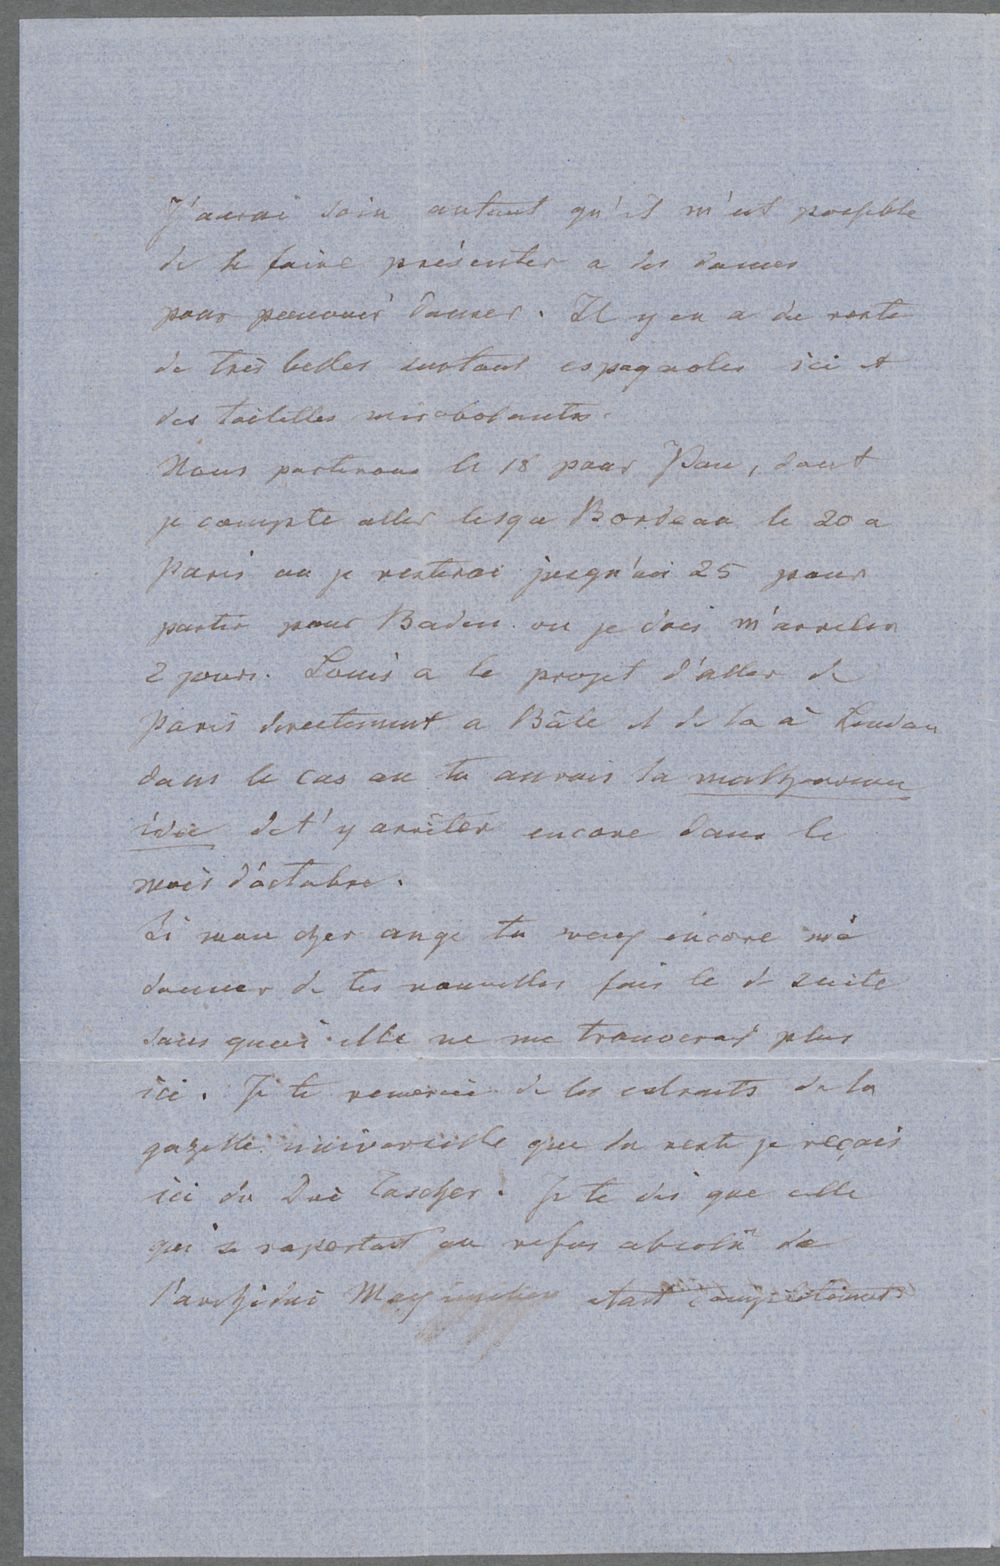 J'aurai soin autant qu'il m'est possible
de te faire présenter a des dames
pour pouvoir danser. Il y en a du reste
de très belles surtout espagnoles ici et
des toilettes mirobolantes.
Nous partirons le 18 pour Pau, dont
je compte aller Bordeau le 20 a
Paris ou je resterai jusqu'au 25 pour
partir pour Baden ou je dois m'arreter
2 jours. Louis a le projet d'aller de
Paris directement a Bâle et de la à
dans le cas ou tu aurais la malheureuse
idée de t'y arrêter encore dans le
mois d'octobre.
Si mon cher ange tu veux encore me
donner de tes nouvelles fais le de suite
sans quoi elle ne me trouverat plus
ici. Je te remercie de les extraits de la
gazette universelle que du reste je reçois
ici du Duc Tascher. Je te dis que celle
qui se raportait au refus absolu de
l'archiduc Maximilien etant complètement